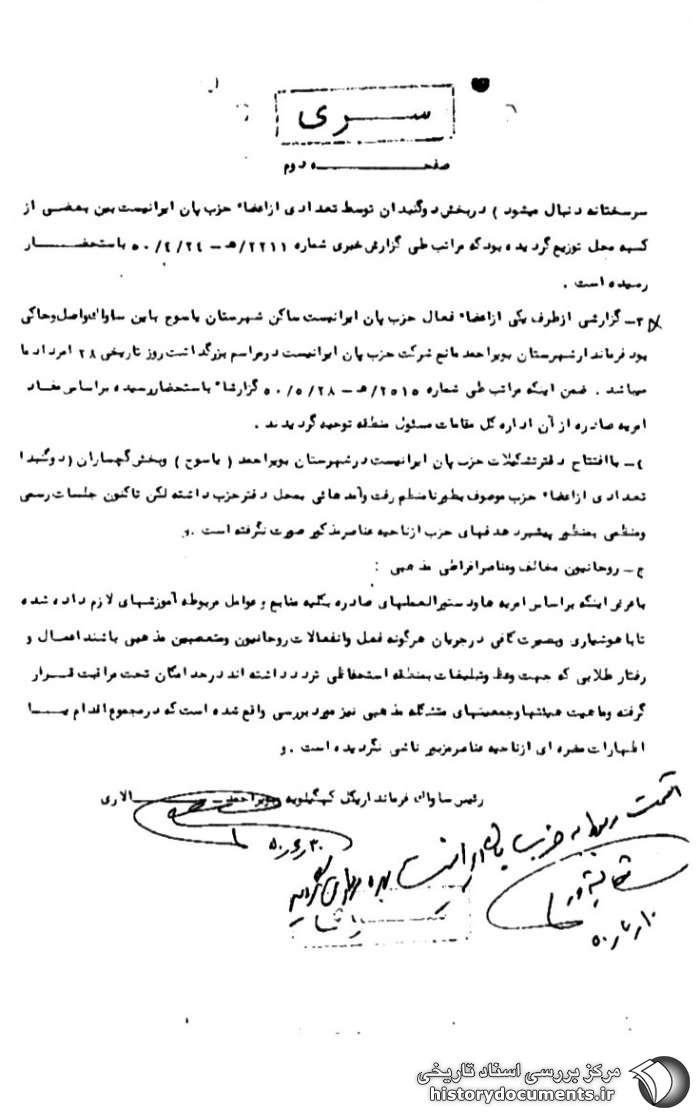 سری
صفحه دوم
سرسختانه دنبال میشود ) دربخش دوگنبدان توسط تعدادی ازاعضاء حزب پان ایرانیست بین بعضی از
کسبه محل توزیع گردیده بود که مراتب طی گزارش خبری شماره ۲۲۱۱/ه‍ - ۵۰/۴/۲۴ باستحضار
رسیده است .
۳- گزارشی ازطرف یکی ازاعضاء فعال حزب پان ایرانیست ساکن شهرستان یاسوج باین ساواک واصل وحاکی
بود فرماندارشهرستان بویراحمد مانع شرکت حزب پان ایرانیست درمراسم بزرگداشت روز تاریخی ۲۸ امرداد ماه
میباشد . ضمن اینکه مراتب طی شماره ۲۵۱۵/ه‍ - ۵۰/۵/۲۸ گزارشا" باستحضاررسیده براساس مفاد
امریه صادره از آن اداره کل مقامات مسئول منطقه توجیه گردیدند .
۴- باافتتاح دفترتشکیلات حزب پان ایرانیست درشهرستان بویراحمد ( یاسوج ) وبخش گچساران ( دوگنبدا
تعدادی ازاعضاء حزب موصوف بطورنامنظم رفت وآمدهائی بمحل دفترحزب داشته لکن تاکنون جلسات رسمی
ومنظمی بمنظور پیشبرد هدفهای حزب ازناحیه عناصرمذکور صورت نگرفته است .و
ج - روحانیون مخالف وعناصرافراطی مذهبی :
باعرض اینکه براساس امریه هاودستورالعملهای صادره بکلیه منابع وعوامل مربوطه آموزشهای لازم داده شده
تاباهوشیاری وبصورت کافی درجریان هرگونه فعل وانفعالات روحانیون ومتعصبین مذهبی باشند اعمال و
رفتار طلابی که جهت وعظ وتبلیغات بمنطقه استحفاظی تردد داشته اند درحد امکان تحت مراقبت قرار
گرفته وماهیت هیئتهاوجمعیتهای متشکله مذهبی نیز مورد بررسی واقع شده است که درمجموع اقدام یا
اظهارات مضره ای ازناحیه عناصرمزبور ناشی نگردیده است . و
رئیس ساواک فرمانداریکل کهگیلویه وبویراحمد - الاری
قسمت مربوط به حزب پان ایرانیست
مرکز بررسی اسناد تاریخی
historydocuments.ir